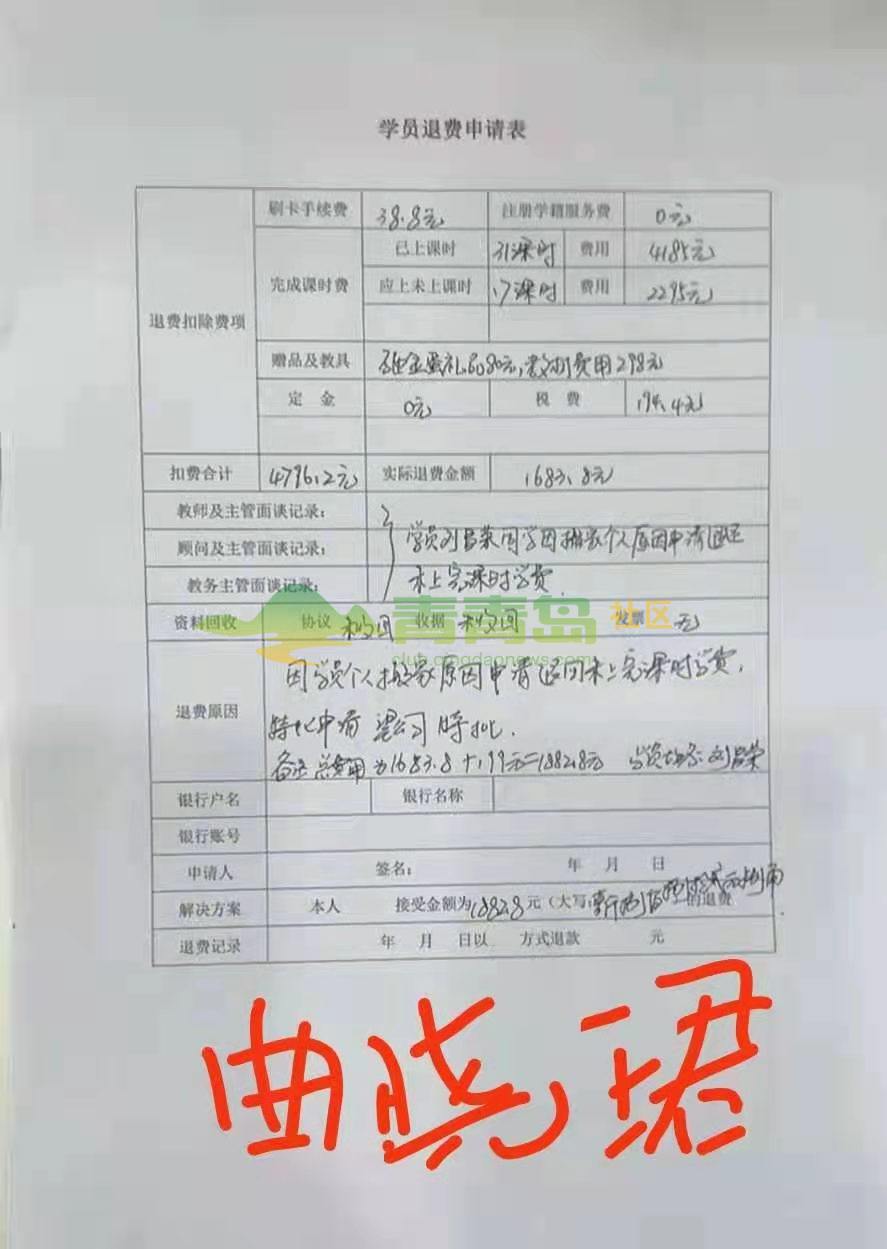 学员退费申请表
退费扣除费项
刷卡手续费 38.8元 注册学籍服务费 0元
完成课时费 已上课时 31课时 费用 4185元
应上未上课时 17课时 费用 2295元
赠品及教具 砸金蛋礼品80元,教材费用298元
定 金 0元 税 费 194.4元
扣费合计 4796.2元 实际退费金额 1683.8元
教师及主管面谈记录:
顾问及主管面谈记录: 学员刘昌荣同学因搬家个人原因申请退回
教务主管面谈记录: 未上完课时学费.
资料回收 协议 未收回 收据 未收回 发票 无
青青岛社区
club.qingdaonews.com
退费原因 因学员个人搬家原因申请退回未上完课时学费,
特此申请 望公司特批.
备注 总费用为1683.8+199元=1882.8元 学员姓名:刘昌荣
银行户名 银行名称
银行账号
申请人 签名: 年 月 日
解决方案 本人 接受金额为1882.8元(大写:壹仟捌佰捌拾贰元捌角 的退费
退费记录 年 月 日以 方式退款 元
曲晓珺